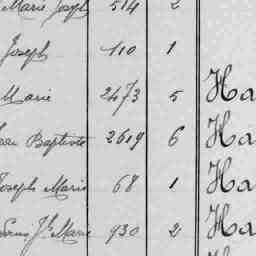 Marie Joseph 514 2
Joseph 110 1
Marie 2473 5 Ha
Baptiste 2619 6 Ha
Joseph Marie 68 1 Ha
Jh Marie 930 2 Ha